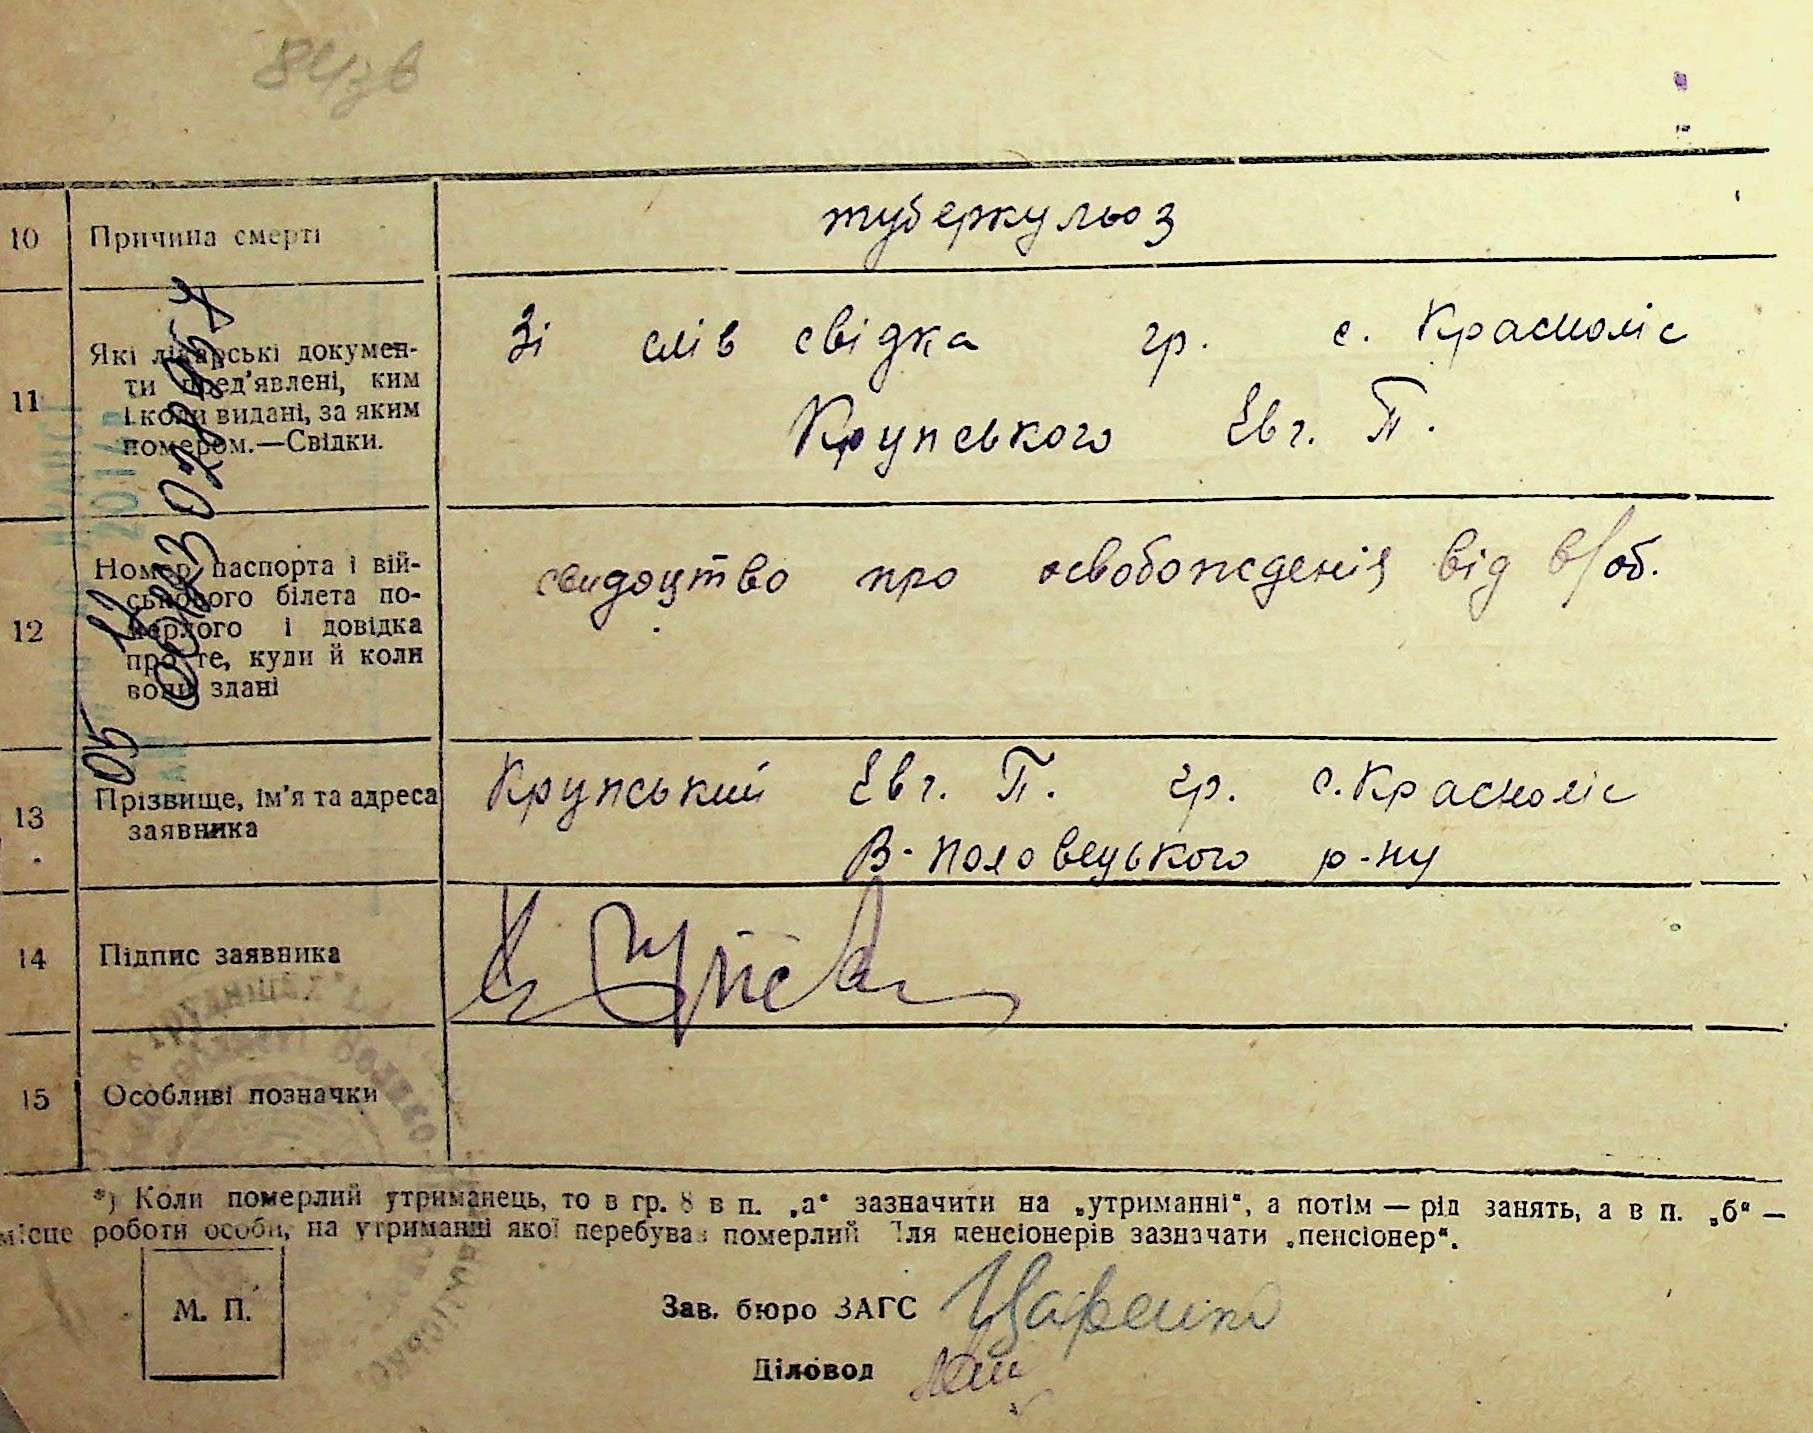 10 Причина смерті туберкульоз
11 Які лікарські докумен-
ти пред'явлені, ким
і коли видані, за яким
помером.—Свідки.
Зі слів свідка гр. с. Красноліс
Крупського Евг. П.
12 Номер паспорта і вій-
ськового білета по-
мерлого і довідка
про те, куди й коли
вони здані
свидоцтво про освобожденія від в/об.
13 Прізвище, ім'я та адреса
заявника
Крупський Евг. П. гр. с. Красноліс
В-Половецького р-ну
14 Підпис заявника
15 Особливі позначки
*) Коли померлий утриманець, то в гр. 8 в п. „а“ зазначити на „утриманні“, а потім — рід занять, а в п. „б“ —
місце роботи особи, на утриманні якої перебував померлий Для пенсіонерів зазначати „пенсіонер“.
М. П.
Зав. бюро ЗАГС
Діловод